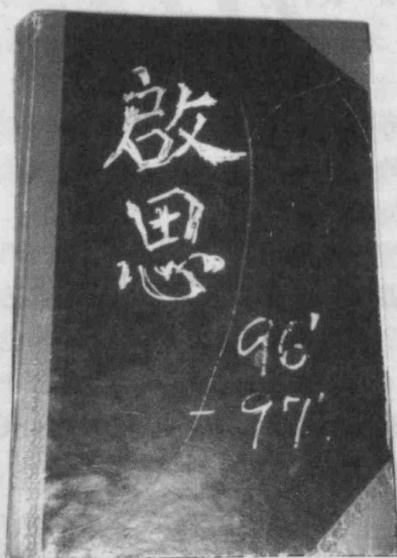 啟思
96'
- 97'